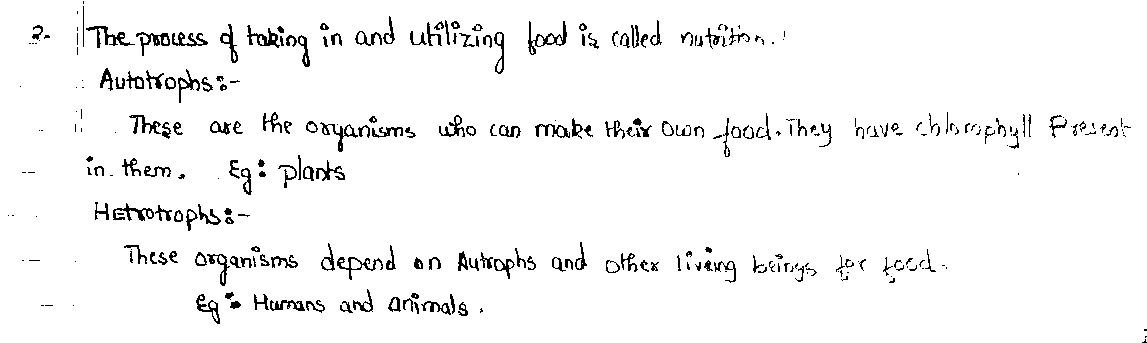 2. The process of taking in and utilizing food is called nutrition.
Autotrophs:-
These are the organisms who can make their own food. They have chlorophyll Present
in them. Eg: plants
Hetrotrophs:-
These organisms depend on Autrophs and other living beings for food.
Eg: Humans and animals.